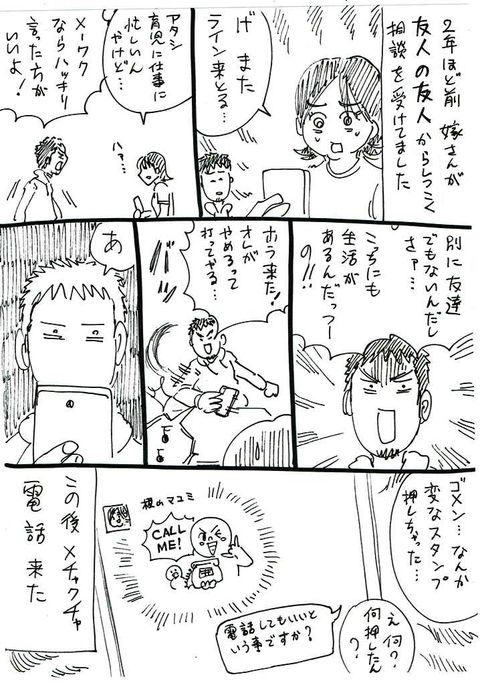 2年ほど前 嫁さんが
友人の友人からしつこく
相談を受けてました
げ また
ライン来とる…
アタシ
育児に仕事に
忙しいん
やけど…
ハァ…
メーワク
ならハッキリ
言た方が
いいよ!
別に友達
でもないんだし
さァ…
こっちにも
生活が
あるんだっつー
の!!
ホラ来た!
オレが
やめろって
打ってやる…
あ
ゴメン…なんか
変なスタンプ
押しちゃった…
え 何?
何押したん
?
CALL
ME!
電話してもいいと
いう事ですか?
この後 メチャクチャ
電話来た